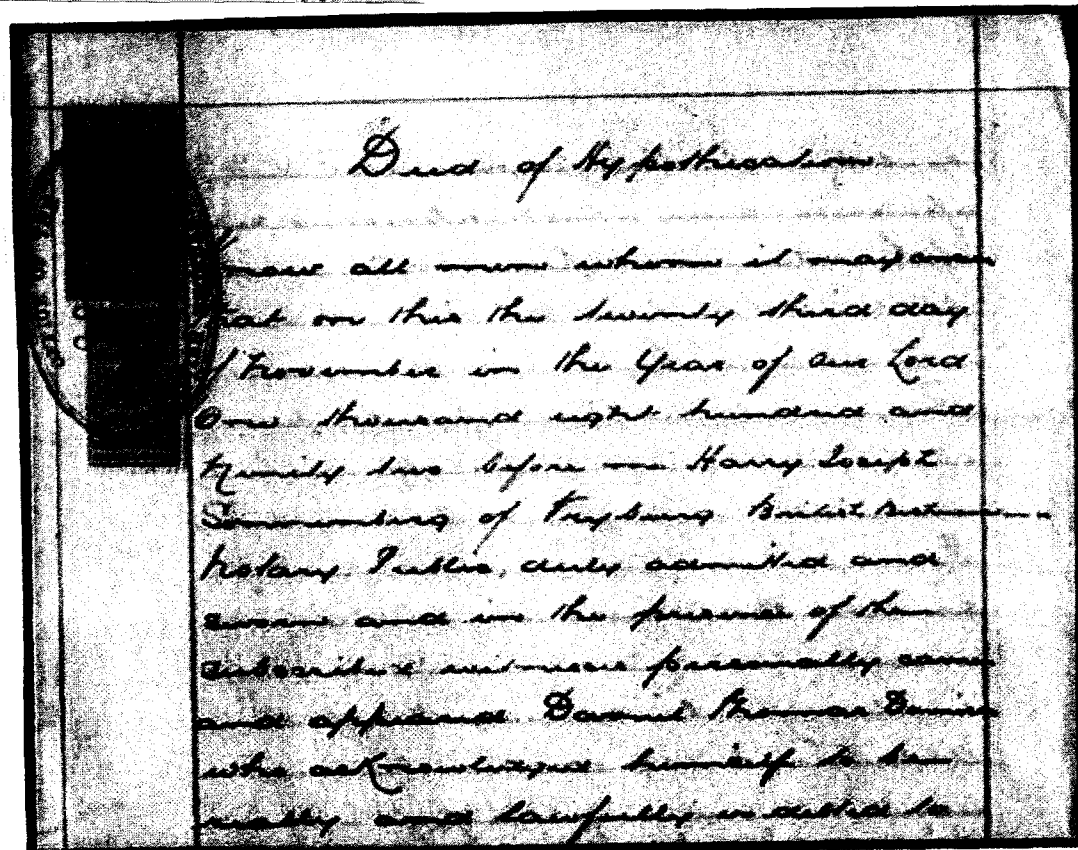 Deed of Hypothecation
Know all men whom it may concern
that on this the twenty third day
of November in the Year of Our Lord
One thousand eight hundred and
ninety two before me Harry Joseph
Sonnenberg of Vryburg British
Notary Public, duly admitted and
sworn and in the presence of the
subscribing witnesses personally came
and appeared Daniel Thomas
who acknowledged himself to be
really and lawfully indebted to